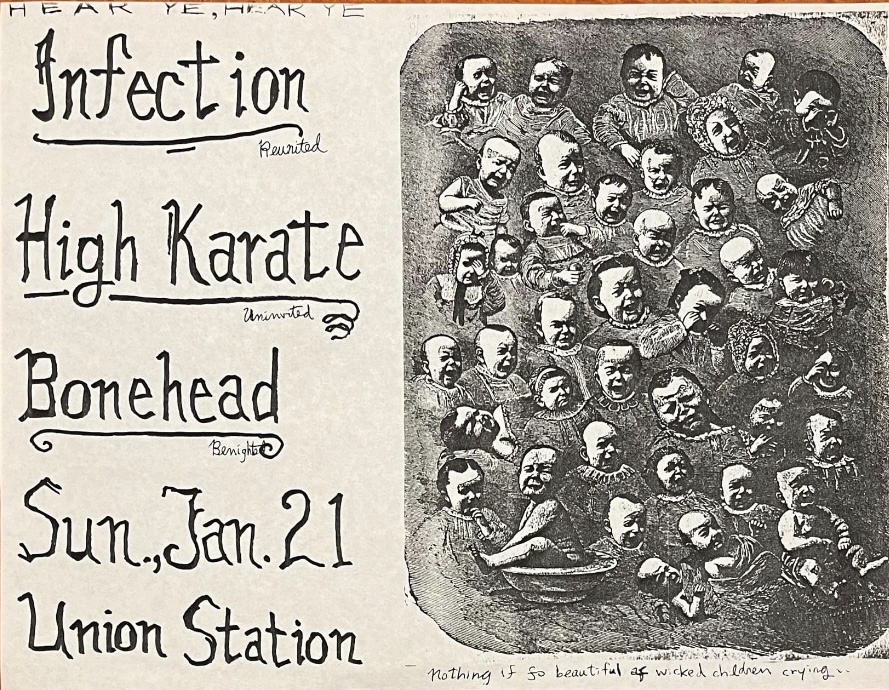 HEAR YE, HEAR YE
Infection
Reunited
High Karate
Uninvited
Bonehead
Benighted
Sun., Jan. 21
Union Station
Nothing if fo beautiful af wicked children crying..